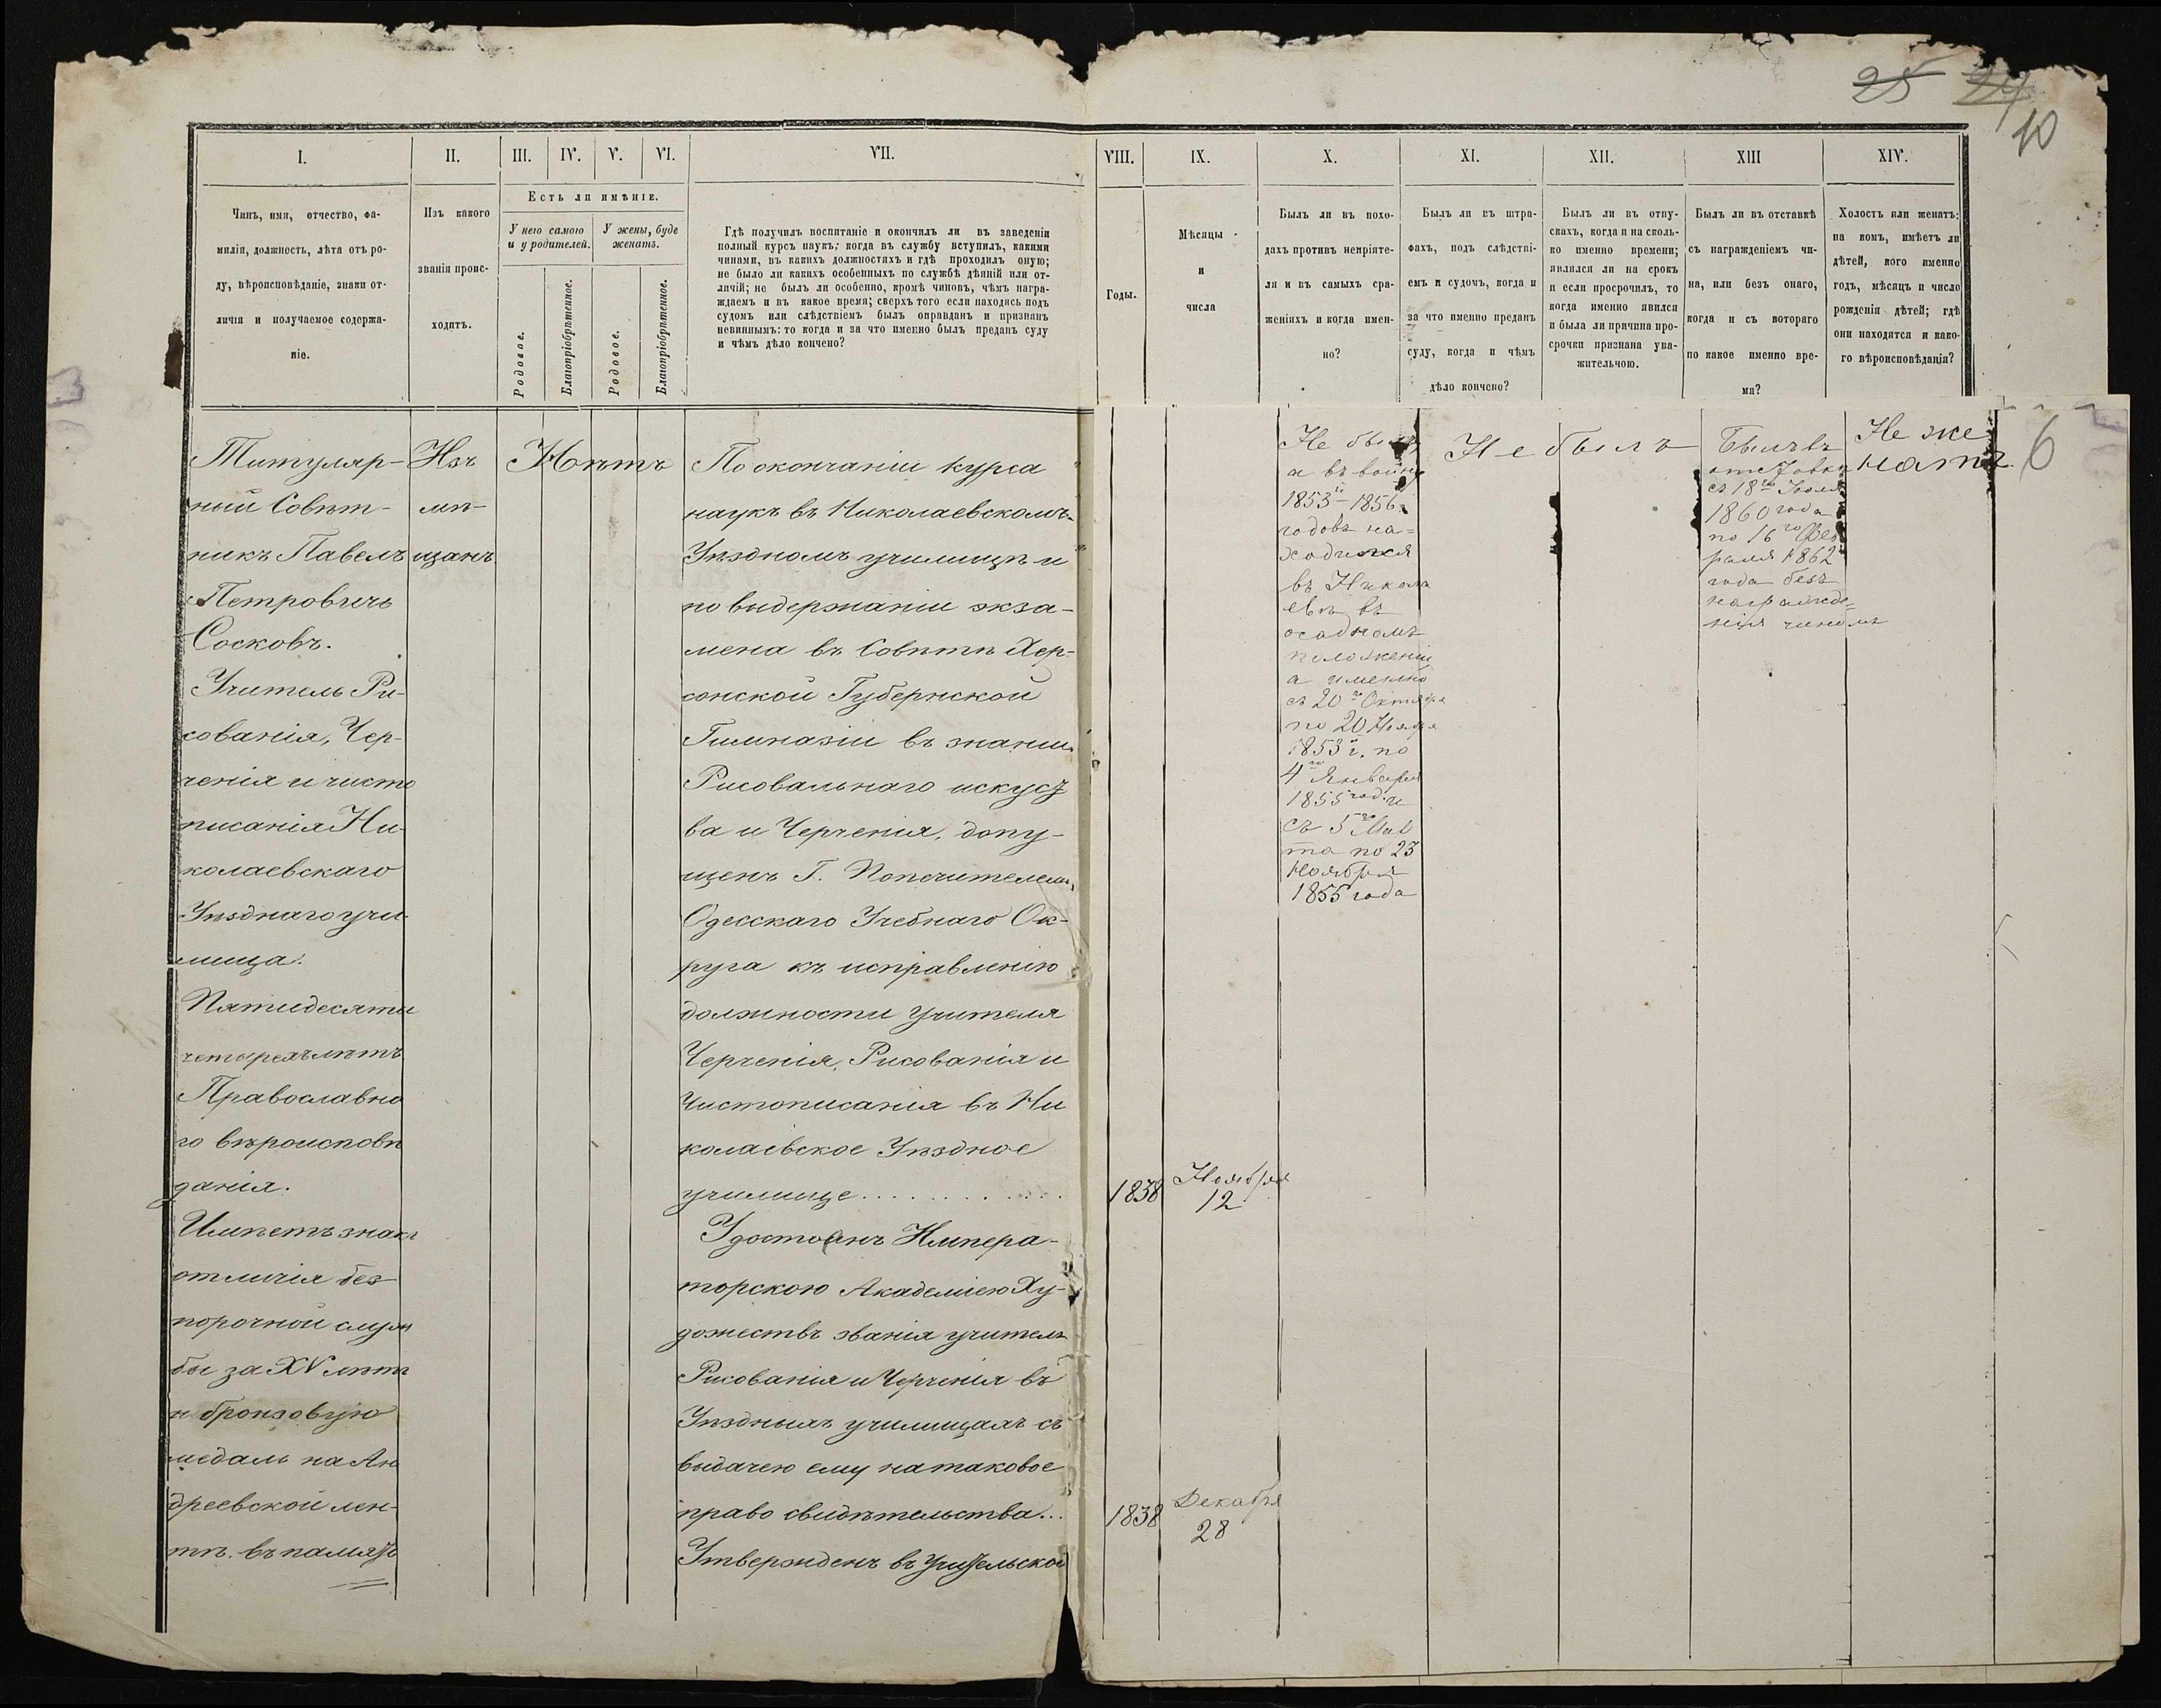 25 24
10
I.
II.
III.
IV.
V.
VI.
VII.
VIII.
IX.
X.
XI.
XII.
XIII
XIV.
Чинъ, имя, отчество, фа-
милія, должность, лѣта отъ ро-
ду, вѣроисповѣданіе, знаки от-
личія и получаемое содержа-
ніе.
Изъ какого
званія проис-
ходитъ.
Есть ли имѣніе.
У него самого
и у родителей.
У жены, буде
женатъ.
Родовое.
Благопріобрѣтенное.
Родовое.
Благопріобрѣтенное.
Гдѣ получилъ воспитаніе и окончилъ ли въ заведеніи
полный курсъ наукъ; когда въ службу вступилъ, какими
чинами, въ какихъ должностяхъ и гдѣ проходилъ оную;
не было ли какихъ особенныхъ по службѣ дѣяній или от-
личій; не былъ ли особенно, кромѣ чиновъ, чѣмъ награ-
ждаемъ и въ какое время; сверхъ того если находясь подъ
судомъ или слѣдствіемъ былъ оправданъ и признанъ
невиннымъ: то когда и за что именно былъ преданъ суду
и чѣмъ дѣло кончено?
Годы.
Мѣсяцы
и
числа
Былъ ли въ похо-
дахъ противъ непріяте-
ля и въ самыхъ сра-
женіяхъ и когда имен-
но?
Былъ ли въ штра-
фахъ, подъ слѣдстві-
емъ и судомъ, когда и
за что именно преданъ
суду, когда и чѣмъ
дѣло кончено?
Былъ ли въ отпу-
скахъ, когда и на сколь-
ко именно времени;
являлся ли на срокъ
и если просрочилъ, то
когда именно явился
и была ли причина про-
срочки признана ува-
жительною.
Былъ ли въ отставкѣ
съ награжденіемъ чи-
на, или безъ онаго,
когда и съ котораго
по какое именно вре-
мя?
Холостъ или женатъ;
на комъ, имѣетъ ли
дѣтей, кого именно
годъ, мѣсяцъ и число
рожденія дѣтей; гдѣ
они находятся и како-
го вѣроисповѣданія?
Титуляр-
ный Совѣт-
никъ Павелъ
Петровичь
Сосковъ.
Учитель Ри-
сованія, Чер-
ченія и чисто
писанія Ни-
колаевскаго
Уѣзднаго учи-
лища.
Пятидесяти
четырехъ лѣтъ
Православна
го вѣроисповѣ
данія.
Имѣетъ знакъ
отличія без-
порочной служ
бы за XV лѣтъ
и бронзовую
медаль на Ан
дреевской лен-
тѣ въ память
Изъ
мѣ-
щанъ
Нѣтъ
По окончаніи курса
наукъ въ Николаевскомъ
Уѣздномъ училищѣ и
по выдержаніи экза-
мена въ Совѣтѣ Хер-
сонской Губернской
Гимназіи въ знаніи
Рисовальнаго искуст
ва и Черченія, допу-
щенъ Г. Попечителемъ
Одесскаго Учебнаго Ок-
руга къ исправленію
должности учителя
Черченія, Рисованія и
Чистописанія въ Ни
колаевское Уѣздное
училище............
Удостоенъ Импера-
торскою Академіею Ху-
дожествъ званія учителя
Рисованія и Черченія въ
Уѣздныхъ училищахъ съ
выдачею ему на таковое
право свидѣтельства...
Утвержденъ въ учительской
1838
Ноября
12
1838
Декабря
28
Не былъ
а въ войну
1853 - 1856
годовъ на=
ходился
въ Никола
евѣ въ
осадномъ
положеніи
а именно
съ 20 Октября
по 20 Ноября
1853 г. по
4 Января
1855 год. и
съ 5
та по 23
Ноября
1855 года
Не былъ
Былъ въ
отставкѣ
съ 18го Іюля
1860 года
по 16го Фев
раля 1862
года безъ
награжде=
нія чиномъ
Не же
натъ.
6